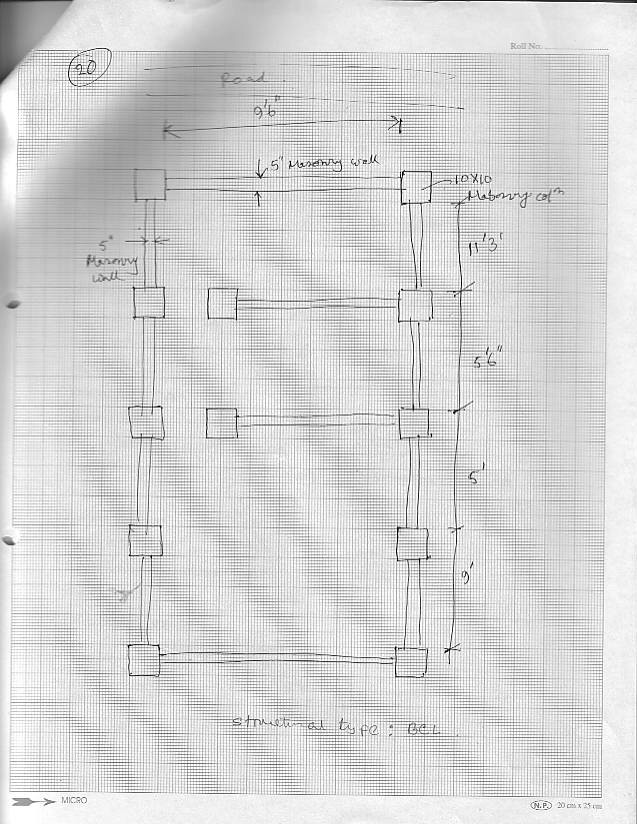 Roll No.
20
Road
9'6"
5" Masonry wall
10X10
Masonry colm
5"
Masonry
wall
11'3'
5'6"
5'
9'
Structural type : BCL
MICRO
N.P. 20 cm x 25 cm